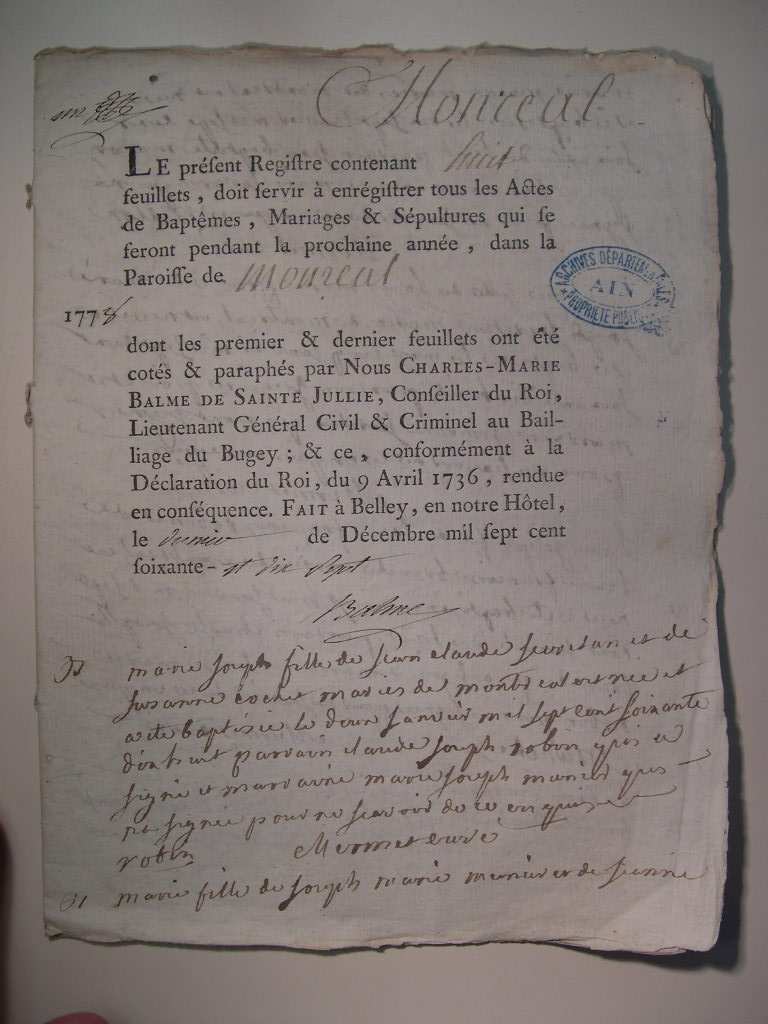 un
Monreal
LE préſent Regiſtre contenant huit
feuillets, doit ſervir à enrégiſtrer tous les Actes
de Baptêmes, Mariages & Sépultures qui ſe
feront pendant la prochaine année, dans la
Paroiſſe de monreal
ARCHIVES DÉPARTEMENTALES
AIN
PROPRIÉTÉ PUBLIQUE
1778
dont les premier & dernier feuillets ont été
cotés & paraphés par Nous CHARLES-MARIE
BALME DE SAINTE JULLIE, Conſeiller du Roi,
Lieutenant Général Civil & Criminel au Bail-
liage du Bugey ; & ce, conformément à la
Déclaration du Roi, du 9 Avril 1736, rendue
en conſéquence. FAIT à Belley, en notre Hôtel,
le dernier de Décembre mil ſept cent
ſoixante- et dix sept
Balme
marie joseph fille de jean claude secretan et de
susanne cochet mariés de montreal est née et
a été baptisée le janvier mil sept cent soixante
dixhuit parrain claude joseph robin qui a
signé et marraine marie joseph qui
signee pour ne scavoir de ce enquise
robin Mermet curé
marie fille de joseph marie et de jeanne